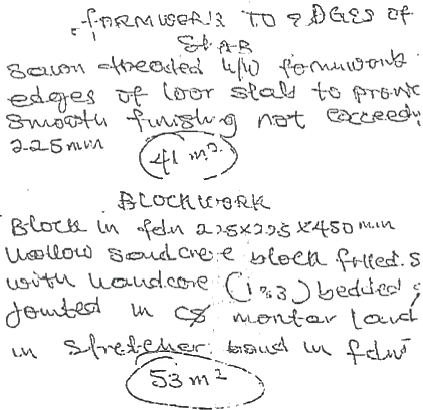 FORMWORK TO EDGES OF
SLAB
Sawn treated h/w formwork
edges of floor slab to provide
smooth finishing not exceedy
225mm
41 m²
BLOCKWORK
Block in fdn 225x225x450 mm
Hollow sandcrete block filled
with hardcore (1:3) bedded
Jointed in C/S mortar laid
in stretcher bond in fdn
53 m²